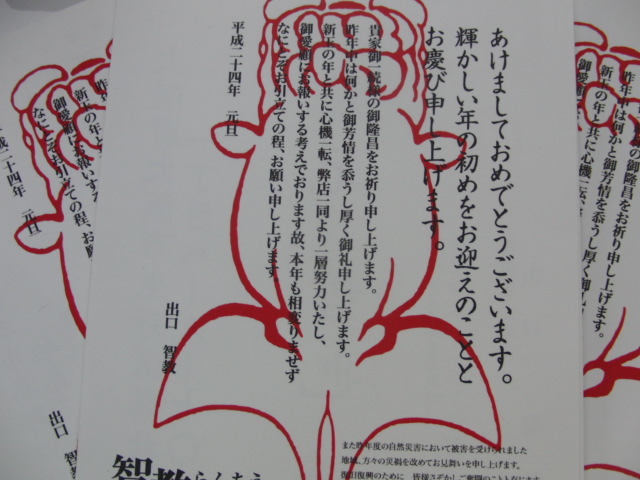 あけましておめでとうございます。
輝かしい年の初めをお迎えのことと
お慶び申し上げます。
貴家御一統様の御隆昌をお祈り申し上げます。
昨年中は何かと御芳情を忝うし厚く御礼申し上げます。
新玉の年と共に心機一転、弊店一同より一層努力いたし、
御愛顧にお報いする考えでおります故、本年も相変りませず
なにとぞお引立ての程、お願い申し上げます。
平成二十四年 元旦
出口 智教
また昨年度の自然災害において被害を受けられました
地域、方々の災禍を改めてお見舞いを申し上げます。
復旧復興のために 皆様さぞかしご奮闘のことと存じます
智教らんちう
昨年
新玉の年
御愛顧にお報いする
なにとぞお引立ての程、お願
平成二十四年 元旦
出口 智教
昨年中は何かと御芳情を忝うし厚く御
新玉の年と共に心機一転、弊